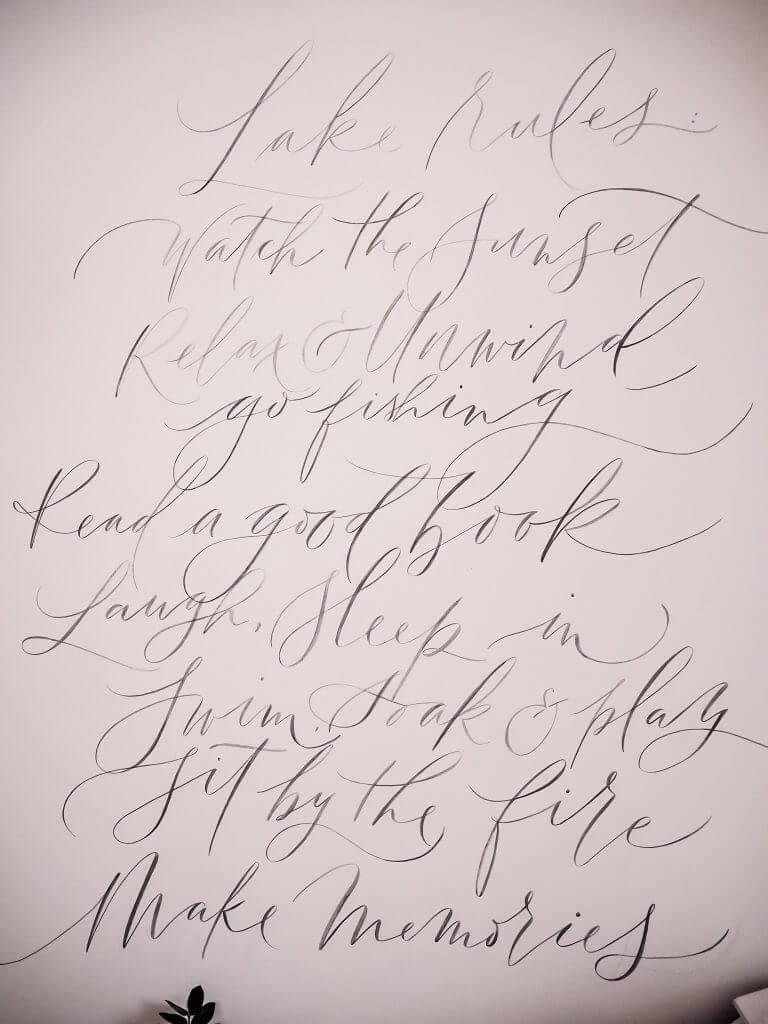 Lake rules:
Watch the sunset
Relax & Unwind
go fishing
Read a good book
Laugh, sleep in
Swim, soak & play
sit by the fire
Make Memories